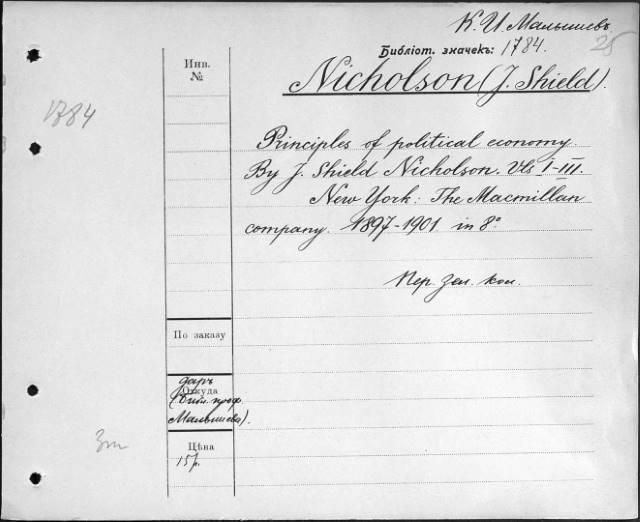 К. И. Малышевъ
25
Библіот. значекъ: 1784.
Nicholson (J. Shield).
Инв.
№
1784
Principles of political economy.
By J. Shield Nicholson. Vls I-III.
New York: The Macmillan
company. 1897-1901. in 8°.
Пер. зел. кол.
По заказу
даръ
Откуда
(Библ. проф.
Малышева).
Цѣна
15р.